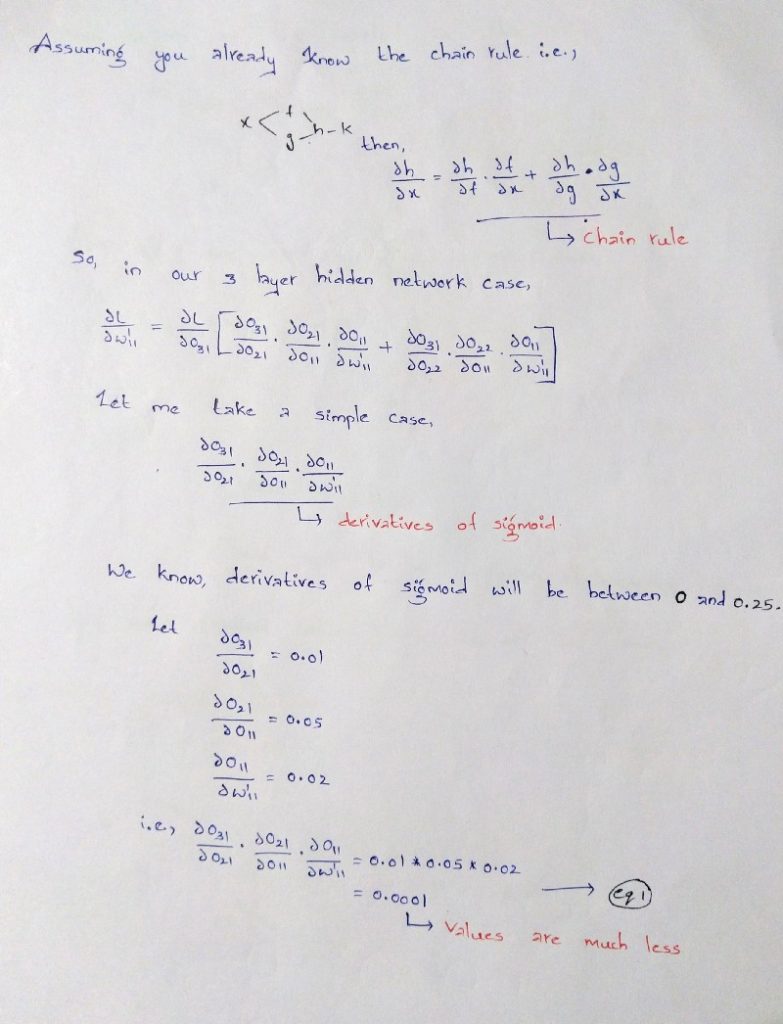 Assuming you already know the chain rule. i.e.,
x < f g > h - k
then,
∂h/∂x = ∂h/∂f · ∂f/∂x + ∂h/∂g · ∂g/∂x
↳ chain rule
So, in our 3 layer hidden network case,
∂L/∂w¹₁₁ = ∂L/∂O₃₁ [ ∂O₃₁/∂O₂₁ · ∂O₂₁/∂O₁₁ · ∂O₁₁/∂w¹₁₁ + ∂O₃₁/∂O₂₂ · ∂O₂₂/∂O₁₁ · ∂O₁₁/∂w¹₁₁ ]
Let me take a simple case,
∂O₃₁/∂O₂₁ · ∂O₂₁/∂O₁₁ · ∂O₁₁/∂w¹₁₁
↳ derivatives of sigmoid.
We know, derivatives of sigmoid will be between 0 and 0.25.
Let ∂O₃₁/∂O₂₁ = 0.01
∂O₂₁/∂O₁₁ = 0.05
∂O₁₁/∂w¹₁₁ = 0.02
i.e, ∂O₃₁/∂O₂₁ · ∂O₂₁/∂O₁₁ · ∂O₁₁/∂w¹₁₁ = 0.01 * 0.05 * 0.02 → eq 1
= 0.0001
↳ Values are much less